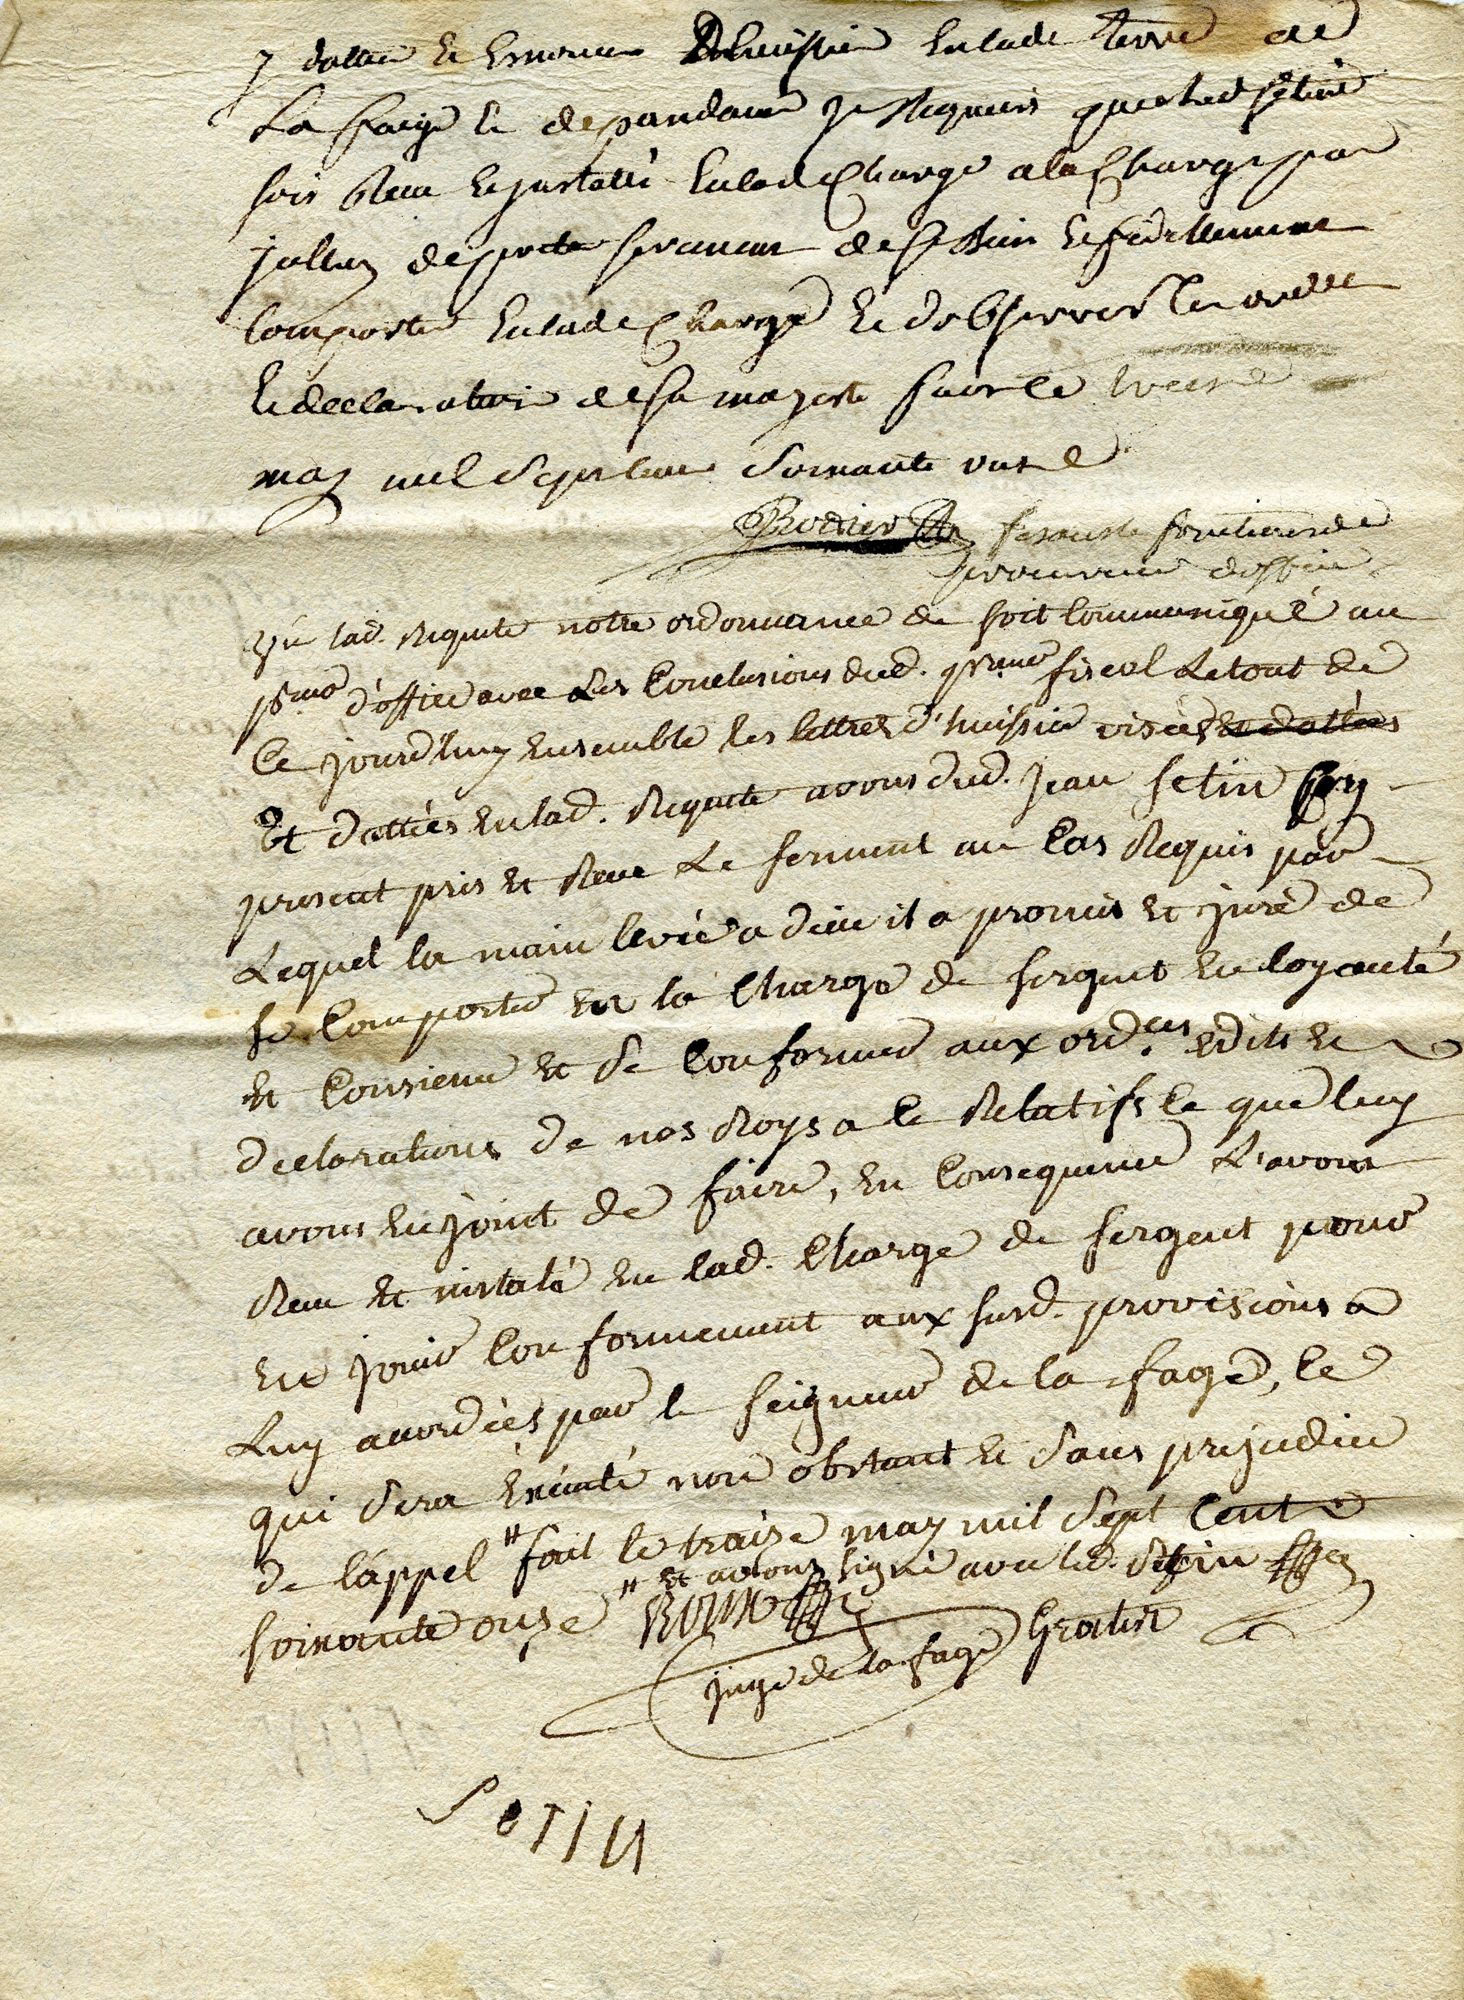 y dattée et Enoncée d'huissier En lade terre de
La faige et dependance je Requiers que led Setin
soit Receu et installé En lad Charge a la Charge par
de preter serment de se bien et fidellement
comporter En lade Charge et d'observer les ordces
et declaration de sa majesté faior le treize
may mil sept cent soixante onze
Rodier faisant fonctions de
procureur d'office
Vu lad. Requete notre ordonnance de soit Communiqué au
preur d'office avec Les Conclusions dud. preur fiscal Le tout de
Ce jourd'huy Ensemble les lettres d'huissier visées et dattées
Et dattées En lad. Requete avons dud. jean setin Icy
present pris et Receu Le serment au Cas Requis par
Lequel la main levée a dieu il a promis et juré de
se Comporter En la Charge de sergent En loyauté
et Consience et se Conformer aux ordces Edits et
declarations de nos Roys a Ce Relatifs Ce que luy
avons Enjoint de faire, En Consequence L'avons
Receu et instalé En lad. Charge de sergent pour
En jouir Conformement aux susd. provisions a
Luy accordées par le seigneur de la fage, Ce
qui sera Exécuté non obstant et sans prejudice
de l'appel " fait le traize may mil sept Cent
soixante onze " et avons signé avec led. Setin
Roux
juge de la fage Gratin
Setin